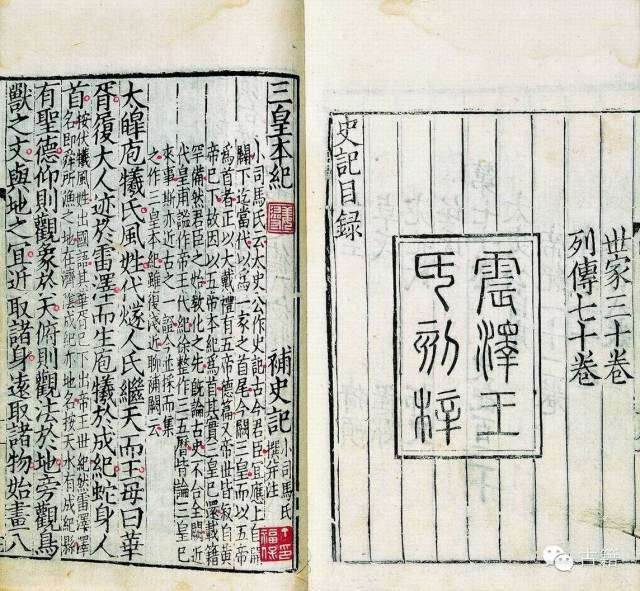 世家三十卷
列傳七十卷
震澤王
氏刻梓
史記目録
三皇本紀
補史記
小司馬氏
撰并注
小司馬氏云太史公作史記古今君臣宜應上自開
闢下迄當代以爲一家之首尾今闕三皇而以五帝
爲首者正以大戴禮有五帝德篇又帝世皆叙自黄
帝已下故因以五帝本紀爲首其實三皇已還載籍
罕備然君臣之始教化之先既論古史不合全闕近
代皇甫謐作帝王代紀徐整作三五曆皆論三皇已
來事斯亦近古之一證今並採而集
之作三皇本紀雖復淺近聊補闕云
太皞庖犧氏風姓代燧人氏繼天而王母曰華
胥履大人迹於雷澤而生庖犧於成紀蛇身人
首
按伏犧風姓出國語其華胥已下出帝王世紀然雷澤澤
名即舜所漁之地在濟隂成紀亦地名按天水有成紀縣
有聖德仰則觀象於天俯則觀法於地旁觀鳥
獸之文與地之宜近取諸身遠取諸物始畫八
福保
古籍